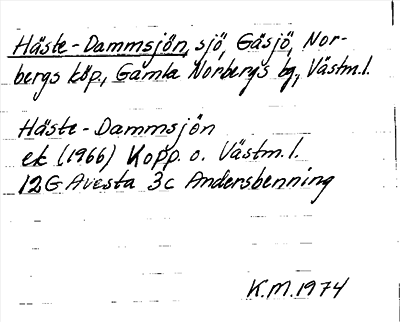 Häste-Dammsjön, sjö, Gäsjö, Nor-
bergs köp., Gamla Norbergs bg, Västm.l.
Häste-Dammsjön
ek (1966) Kopp. o. Västm.l.
12G Avesta 3c Andersbenning
K.M. 1974